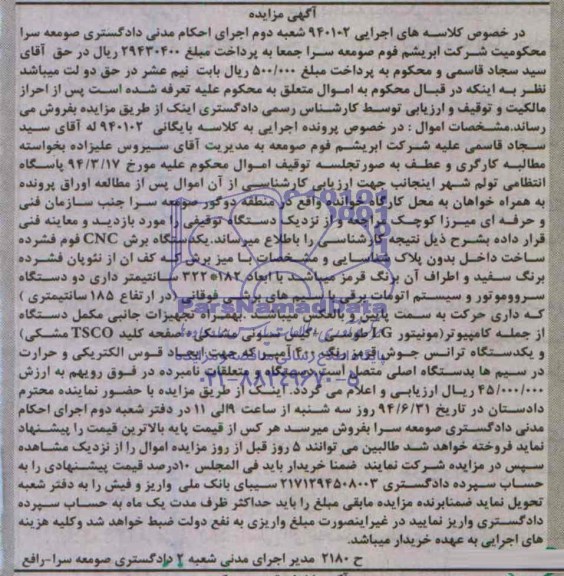 آگهی مزایده
در خصوص کلاسه های اجرایی ۹۴۰۱۰۲ شعبه دوم اجرای احکام مدنی دادگستری صومعه سرا
محکومیت شرکت ابریشم فوم صومعه سرا جمعا به پرداخت مبلغ ۲۹۴۳۰۴۰۰ ریال در حق آقای
سید سجاد قاسمی و محکوم به پرداخت مبلغ ۵۰۰/۰۰۰ ریال بابت نیم عشر در حق دولت میباشد
نظر به اینکه در قبال محکوم به اموال متعلق به محکوم علیه تعرفه شده است پس از احراز
مالکیت و توقیف و ارزیابی توسط کارشناس رسمی دادگستری اینک از طریق مزایده بفروش می
رساند.مشخصات اموال : در خصوص پرونده اجرایی به کلاسه بایگانی ۹۴۰۱۰۲ له آقای سید
سجاد قاسمی علیه شرکت ابریشم فوم صومعه به مدیریت آقای سیروس علیزاده بخواسته
مطالبه کارگری و عطف به صورتجلسه توقیف اموال محکوم علیه مورخ ۹۴/۳/۱۷ پاسگاه
انتظامی تولم شهر اینجانب جهت ارزیابی کارشناسی از آن اموال پس از مطالعه اوراق پرونده
به همراه خواهان به محل کارگاه خوانده واقع در منطقه دوگور صومعه سرا جنب سازمان فنی
و حرفه ای میرزا کوچک مراجعه و از نزدیک دستگاه توقیفی را مورد بازدید و معاینه فنی
قرار داده بشرح ذیل نتیجه کارشناسی را باطلاع میرساند.یکدستگاه برش CNC فوم فشرده
ساخت داخل بدون پلاک شناسایی و مشخصات با میز برش که کف ان از نئوپان فشرده
برنگ سفید و اطراف آن برنگ قرمز میباشد با ابعاد ۱۸۲*۳۲۲ سانتیمتر داری دو دستگاه
سرووموتور و سیستم اتومات برقی با سیم های برشی فوقانی (در ارتفاع ۱۸۵ سانتیمتری )
که داری حرکت به سمت پایین و بالعکس میباشد به همراه تجهیزات جانبی مکمل دستگاه
از جمله کامپیوتر(مونیتور LG طوسی +کیس سیلونی مشکی+صفحه کلید TSCO مشکی)
و یکدستگاه ترانس جوش قرمز رنگ ۲۵۰ آمپر که جهت ایجاد قوس الکتریکی و حرارت
در سیم ها بدستگاه اصلی متصل است دستگاه و متعلقات نامبرده در فوق رویهم به ارزش
۴۵/۰۰۰/۰۰۰ ریال ارزیابی و اعلام می گردد. اینک از طریق مزایده با حضور نماینده محترم
دادستان در تاریخ ۹۴/۶/۳۱ روز سه شنبه از ساعت ۹الی ۱۱ در دفتر شعبه دوم اجرای احکام
مدنی دادگستری صومعه سرا بفروش میرسد هر کس از قیمت پایه بالاترین قیمت را پیشنهاد
نماید فروخته خواهد شد طالبین می توانند ۵ روز قبل از روز مزایده اموال را از نزدیک مشاهده
سپس در مزایده شرکت نمایند ضمنا خریدار باید فی المجلس ۱۰درصد قیمت پیشنهادی را به
حساب سپرده دادگستری ۲۱۷۱۲۹۴۵۰۸۰۰۳ سیبای بانک ملی واریز و فیش را به دفتر شعبه
تحویل نماید ضمنابرنده مزایده مابقی مبلغ را باید حداکثر ظرف مدت یک ماه به حساب سپرده
دادگستری واریز نمایید در غیراینصورت مبلغ واریزی به نفع دولت ضبط خواهد شد وکلیه هزینه
های اجرایی به عهده خریدار میباشد.
ح ۲۱۸۰ مدیر اجرای مدنی شعبه ۲ دادگستری صومعه سرا-رافع
ParsNamadData
۰۲۱-۸۸۳۴۹۶۷۰-۵